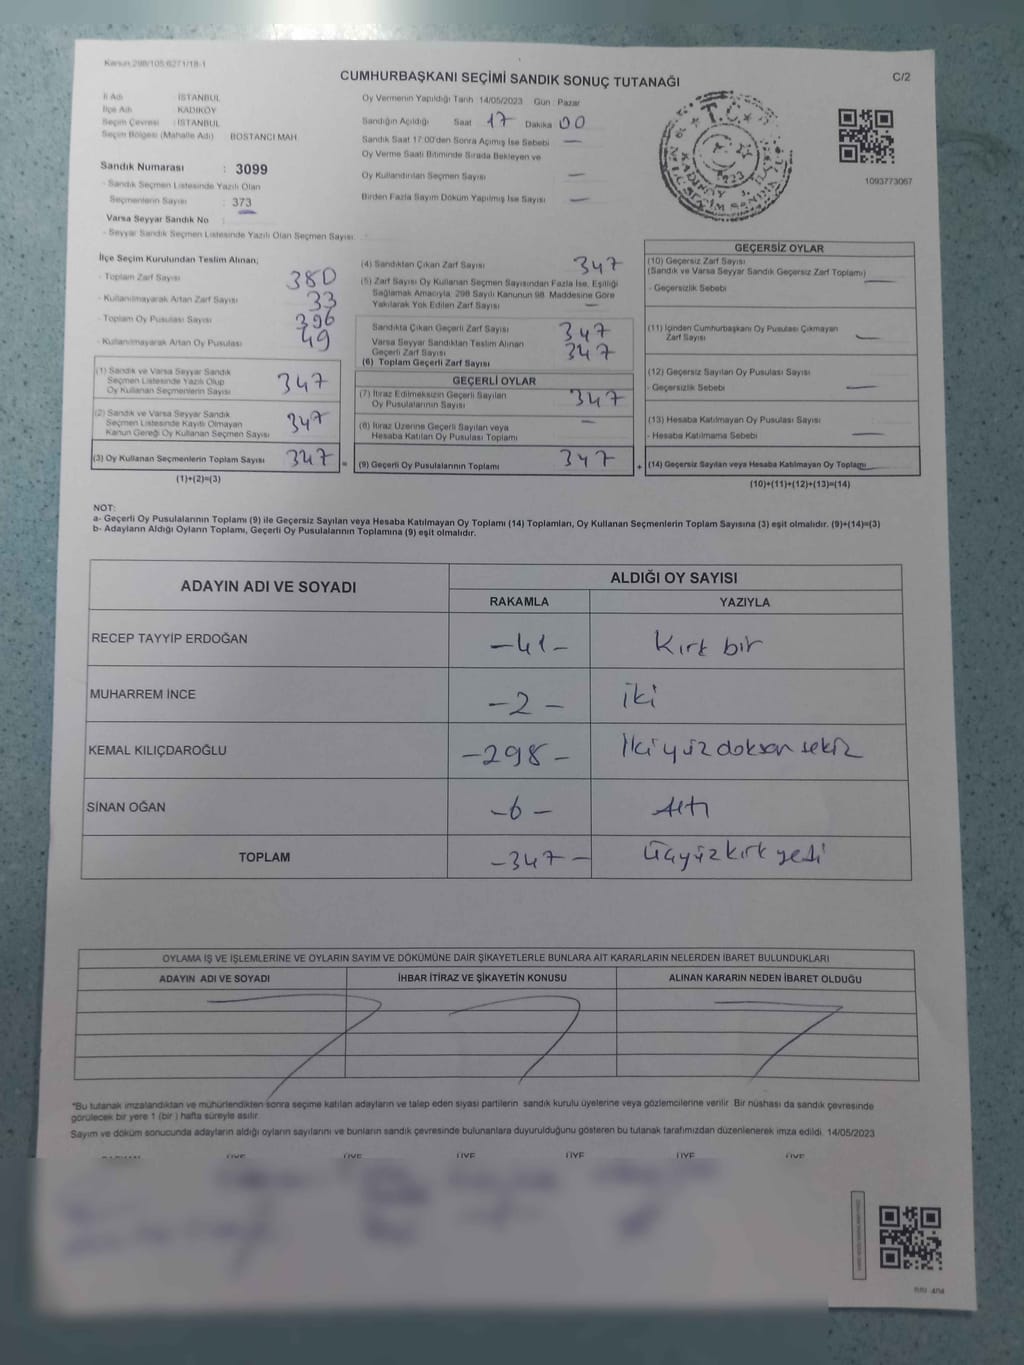 Kanun:298/105;6271/18-1
CUMHURBAŞKANI SEÇİMİ SANDIK SONUÇ TUTANAĞI
C/2
İl Adı : İSTANBUL
İlçe Adı : KADIKÖY
Seçim Çevresi : İSTANBUL
Seçim Bölgesi (Mahalle Adı) : BOSTANCI MAH.
Sandık Numarası : 3099
- Sandık Seçmen Listesinde Yazılı Olan
Seçmenlerin Sayısı : 373
Varsa Seyyar Sandık No :
- Seyyar Sandık Seçmen Listesinde Yazılı Olan Seçmen Sayısı :
Oy Vermenin Yapıldığı Tarih 14/05/2023 Gün : Pazar
Sandığın Açıldığı Saat 17 Dakika 00
Sandık Saat 17:00'den Sonra Açılmış İse Sebebi —
Oy Verme Saati Bitiminde Sırada Bekleyen ve
Oy Kullandırılan Seçmen Sayısı —
Birden Fazla Sayım Döküm Yapılmış İse Sayısı —
T.C.
KADIKÖY
1093773067
İlçe Seçim Kurulundan Teslim Alınan;
- Toplam Zarf Sayısı 380
- Kullanılmayarak Artan Zarf Sayısı 33
- Toplam Oy Pusulası Sayısı 396
- Kullanılmayarak Artan Oy Pusulası 49
(1) Sandık ve Varsa Seyyar Sandık
Seçmen Listesinde Yazılı Olup
Oy Kullanan Seçmenlerin Sayısı 347
(2) Sandık ve Varsa Seyyar Sandık
Seçmen Listesinde Kayıtlı Olmayan
Kanun Gereği Oy Kullanan Seçmen Sayısı 347
(3) Oy Kullanan Seçmenlerin Toplam Sayısı 347 =
(1)+(2)=(3)
(4) Sandıktan Çıkan Zarf Sayısı 347
(5) Zarf Sayısı Oy Kullanan Seçmen Sayısından Fazla İse, Eşitliği
Sağlamak Amacıyla, 298 Sayılı Kanunun 98. Maddesine Göre
Yakılarak Yok Edilen Zarf Sayısı —
Sandıkta Çıkan Geçerli Zarf Sayısı 347
Varsa Seyyar Sandıktan Teslim Alınan
Geçerli Zarf Sayısı 347
(6) Toplam Geçerli Zarf Sayısı
GEÇERLİ OYLAR
(7) İtiraz Edilmeksizin Geçerli Sayılan
Oy Pusulalarının Sayısı 347
(8) İtiraz Üzerine Geçerli Sayılan veya
Hesaba Katılan Oy Pusulası Toplamı —
(9) Geçerli Oy Pusulalarının Toplamı 347 +
GEÇERSİZ OYLAR
(10) Geçersiz Zarf Sayısı
(Sandık ve Varsa Seyyar Sandık Geçersiz Zarf Toplamı) —
- Geçersizlik Sebebi
(11) İçinden Cumhurbaşkanı Oy Pusulası Çıkmayan
Zarf Sayısı —
(12) Geçersiz Sayılan Oy Pusulası Sayısı
- Geçersizlik Sebebi —
(13) Hesaba Katılmayan Oy Pusulası Sayısı
- Hesaba Katılmama Sebebi —
(14) Geçersiz Sayılan veya Hesaba Katılmayan Oy Toplamı —
(10)+(11)+(12)+(13)=(14)
NOT:
a- Geçerli Oy Pusulalarının Toplamı (9) ile Geçersiz Sayılan veya Hesaba Katılmayan Oy Toplamı (14) Toplamları, Oy Kullanan Seçmenlerin Toplam Sayısına (3) eşit olmalıdır. (9)+(14)=(3)
b- Adayların Aldığı Oyların Toplamı, Geçerli Oy Pusulalarının Toplamına (9) eşit olmalıdır.
ADAYIN ADI VE SOYADI
ALDIĞI OY SAYISI
RAKAMLA YAZIYLA
RECEP TAYYİP ERDOĞAN -41- Kırk bir
MUHARREM İNCE -2- iki
KEMAL KILIÇDAROĞLU -298- İkiyüz doksan sekiz
SİNAN OĞAN -6- Altı
TOPLAM -347- Üçyüz kırk yedi
OYLAMA İŞ VE İŞLEMLERİNE VE OYLARIN SAYIM VE DÖKÜMÜNE DAİR ŞİKAYETLERLE BUNLARA AİT KARARLARIN NELERDEN İBARET BULUNDUKLARI
ADAYIN ADI VE SOYADI İHBAR İTİRAZ VE ŞİKAYETİN KONUSU ALINAN KARARIN NEDEN İBARET OLDUĞU
*Bu tutanak imzalandıktan ve mühürlendikten sonra seçime katılan adayların ve talep eden siyasi partilerin sandık kurulu üyelerine veya gözlemcilerine verilir. Bir nüshası da sandık çevresinde
görülecek bir yere 1 (bir ) hafta süreyle asılır.
Sayım ve döküm sonucunda adayların aldığı oyların sayılarını ve bunların sandık çevresinde bulunanlara duyurulduğunu gösteren bu tutanak tarafımızdan düzenlenerek imza edildi. 14/05/2023
ÜYE ÜYE ÜYE ÜYE ÜYE ÜYE